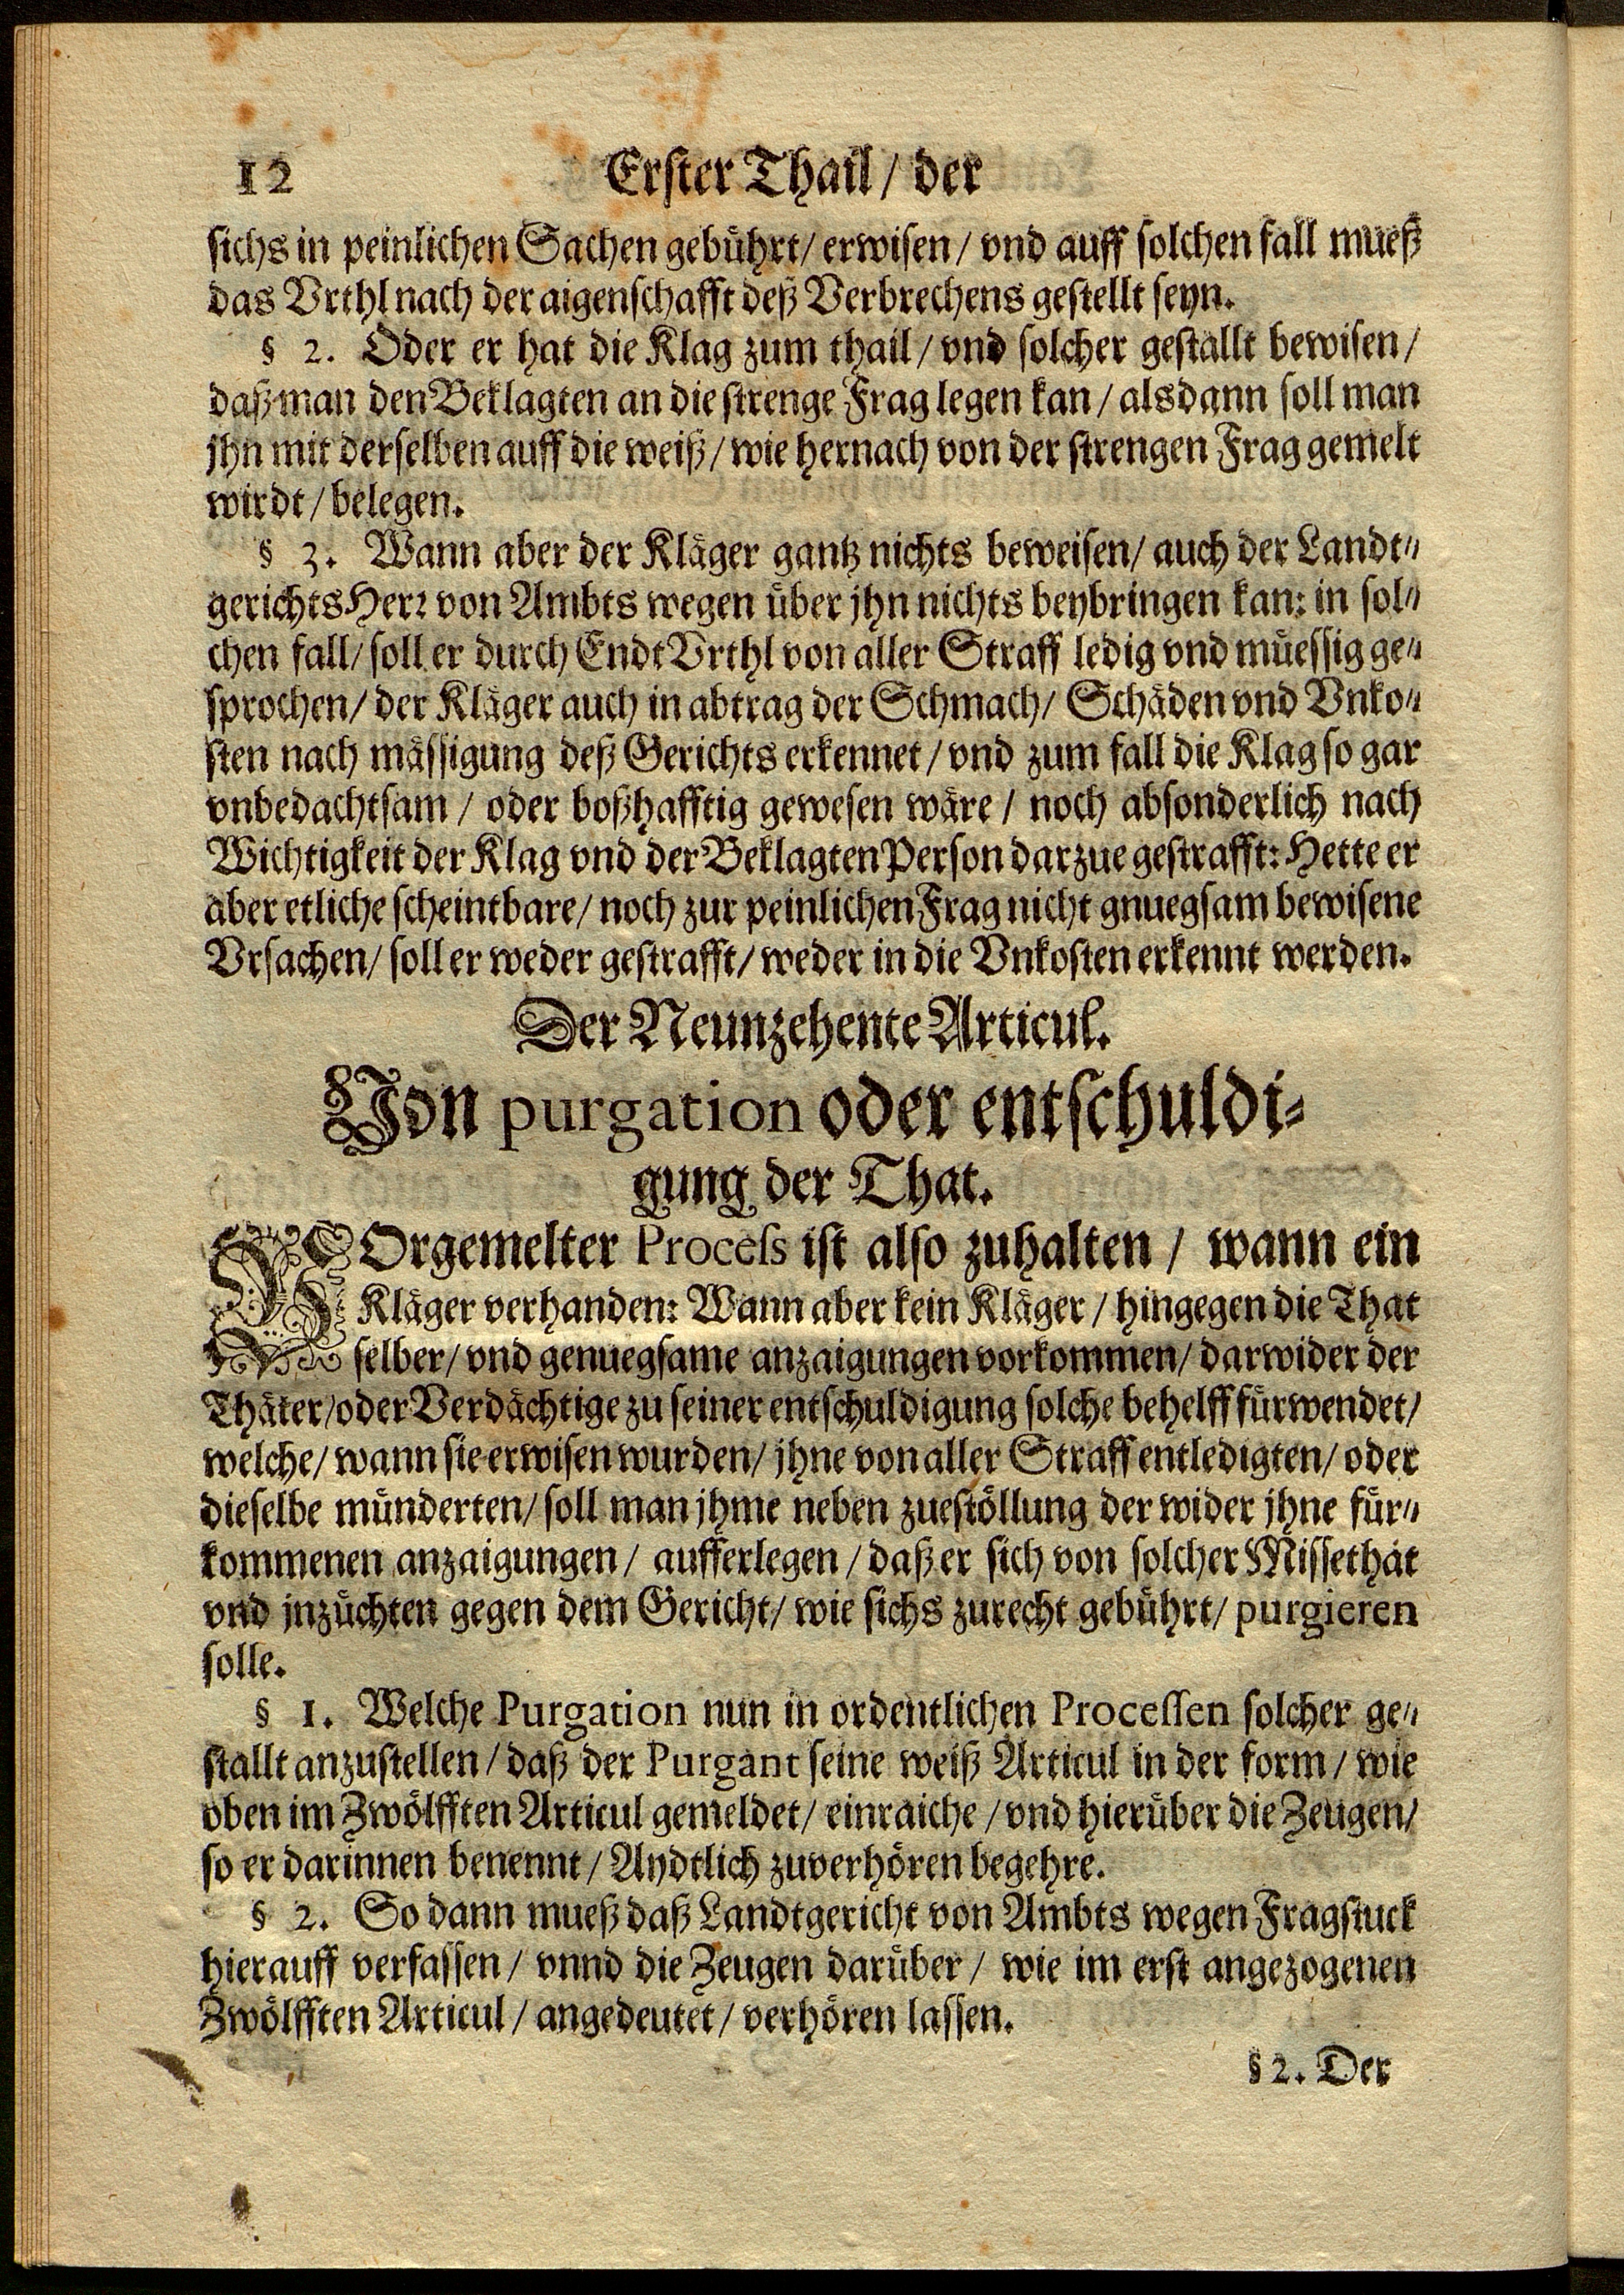 12 Erster Thail / der
sichs in peinlichen Sachen gebührt / erwisen / vnd auff solchen fall mueß
das Vrthl nach der aigenschafft deß Verbrechens gestellt seyn.
§ 2. Oder er hat die Klag zum thail / vnd solcher gestallt bewisen /
daß man den Beklagten an die strenge Frag legen kan / alsdann soll man
jhn mit derselben auff die weiß / wie hernach von der strengen Frag gemelt
wirdt / belegen.
§ 3. Wann aber der Kläger gantz nichts beweisen / auch der Landt-
gerichts Herr von Ambts wegen über jhn nichts beybringen kan: in sol-
chen fall / soll er durch Endt Vrthl von aller Straff ledig vnd müessig ge-
sprochen / der Kläger auch in abtrag der Schmach / Schäden vnd Vnko-
sten nach mässigung deß Gerichts erkennet / vnd zum fall die Klag so gar
vnbedachtsam / oder boßhafftig gewesen wäre / noch absonderlich nach
Wichtigkeit der Klag vnd der Beklagten Person darzue gestrafft: Hette er
aber etliche scheintbare / noch zur peinlichen Frag nicht gnuegsam bewisene
Vrsachen / soll er weder gestrafft / weder in die Vnkosten erkennt werden.
Der Neunzehente Articul.
Von purgation oder entschuldi-
gung der That.
VOrgemelter Process ist also zuhalten / wann ein
Kläger verhanden: Wann aber kein Kläger / hingegen die That
selber / vnd genuegsame anzaigungen vorkommen / darwider der
Thäter / oder Verdächtige zu seiner entschuldigung solche behelff fürwendet /
welche / wann sie erwisen wurden / jhne von aller Straff entledigten / oder
dieselbe münderten / soll man jhme neben zuestöllung der wider jhne für-
kommenen anzaigungen / aufferlegen / daß er sich von solcher Missethat
vnd jnzüchten gegen dem Gericht / wie sichs zurecht gebührt / purgieren
solle.
§ 1. Welche Purgation nun in ordentlichen Processen solcher ge-
stallt anzustellen / daß der Purgant seine weiß Articul in der form / wie
oben im Zwölfften Articul gemeldet / einraiche / vnd hierüber die Zeugen /
so er darinnen benennt / Aydtlich zuverhören begehre.
§ 2. So dann mueß daß Landtgericht von Ambts wegen Fragstuck
hierauff verfassen / vnnd die Zeugen darüber / wie im erst angezogenen
Zwölfften Articul / angedeutet / verhören lassen.
§ 2. Der